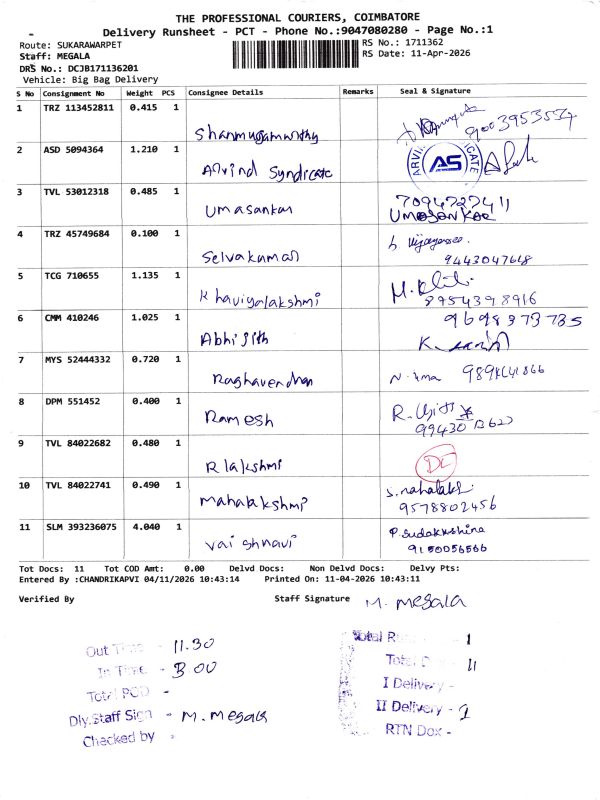 THE PROFESSIONAL COURIERS, COIMBATORE
Delivery Runsheet - PCT - Phone No.:9047080280 - Page No.:1
Route: SUKARAWARPET
RS No.: 1711362
Staff: MEGALA
RS Date: 11-Apr-2026
DRS No.: DCJB171136201
Vehicle: Big Bag Delivery
S No Consignment No Weight PCS Consignee Details Remarks Seal & Signature
1 TRZ 113452811 0.415 1 Shanmugamurthy 9003953557
2 ASD 5094364 1.210 1 Arvind Syndicate AS
3 TVL 53012318 0.485 1 Umasankar 7094727411
UMASANKAR
4 TRZ 45749684 0.100 1 Selvakumar
9443047668
5 TCG 710655 1.135 1 Khaviyalakshmi
8954398916
6 CMM 410246 1.025 1 Abhijith 9698973735
7 MYS 52444332 0.720 1 Raghavendran
8 DPM 551452 0.400 1 Ramesh
9 TVL 84022682 0.480 1 R lakshmi
10 TVL 84022741 0.490 1 Mahalakshmi
9578802456
11 SLM 393236075 4.040 1 Vaishnavi P. Sudakkshina
9150056566
Tot Docs: 11 Tot COD Amt: 0.00 Delvd Docs: Non Delvd Docs: Delvy Pts:
Entered By :CHANDRIKAPVI 04/11/2026 10:43:14 Printed On: 11-04-2026 10:43:11
Verified By Staff Signature M. Megala
Out Time - 11.30
In Time - 3.00
Total POD -
Dly.Staff Sign - M. Megala
Checked by -
Total - 1
Total - 11
I Delivery -
II Delivery - 1
RTN Dox -